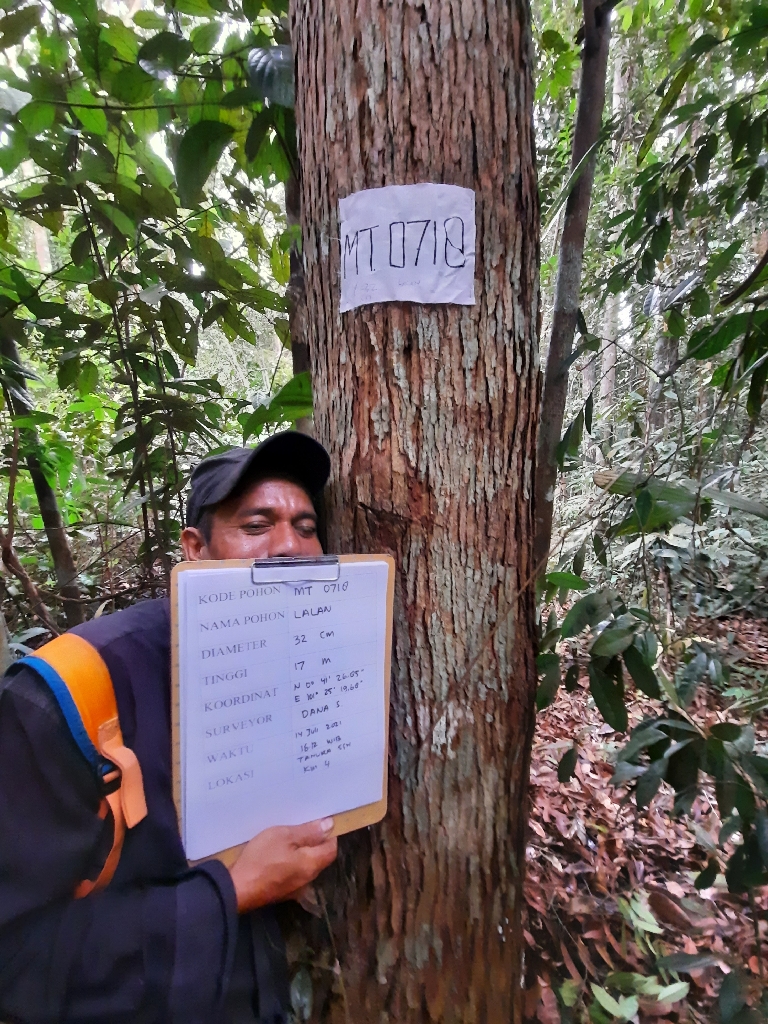 MT 0710
KODE POHON MT 0710
NAMA POHON LALAN
DIAMETER 32 cm
TINGGI 17 m
KOORDINAT N 0° 41' 26.65"
E 101° 25' 19.68"
SURVEYOR DANA S
WAKTU 14 JULI 2021
16.12 WIB
LOKASI TAHURA SSH